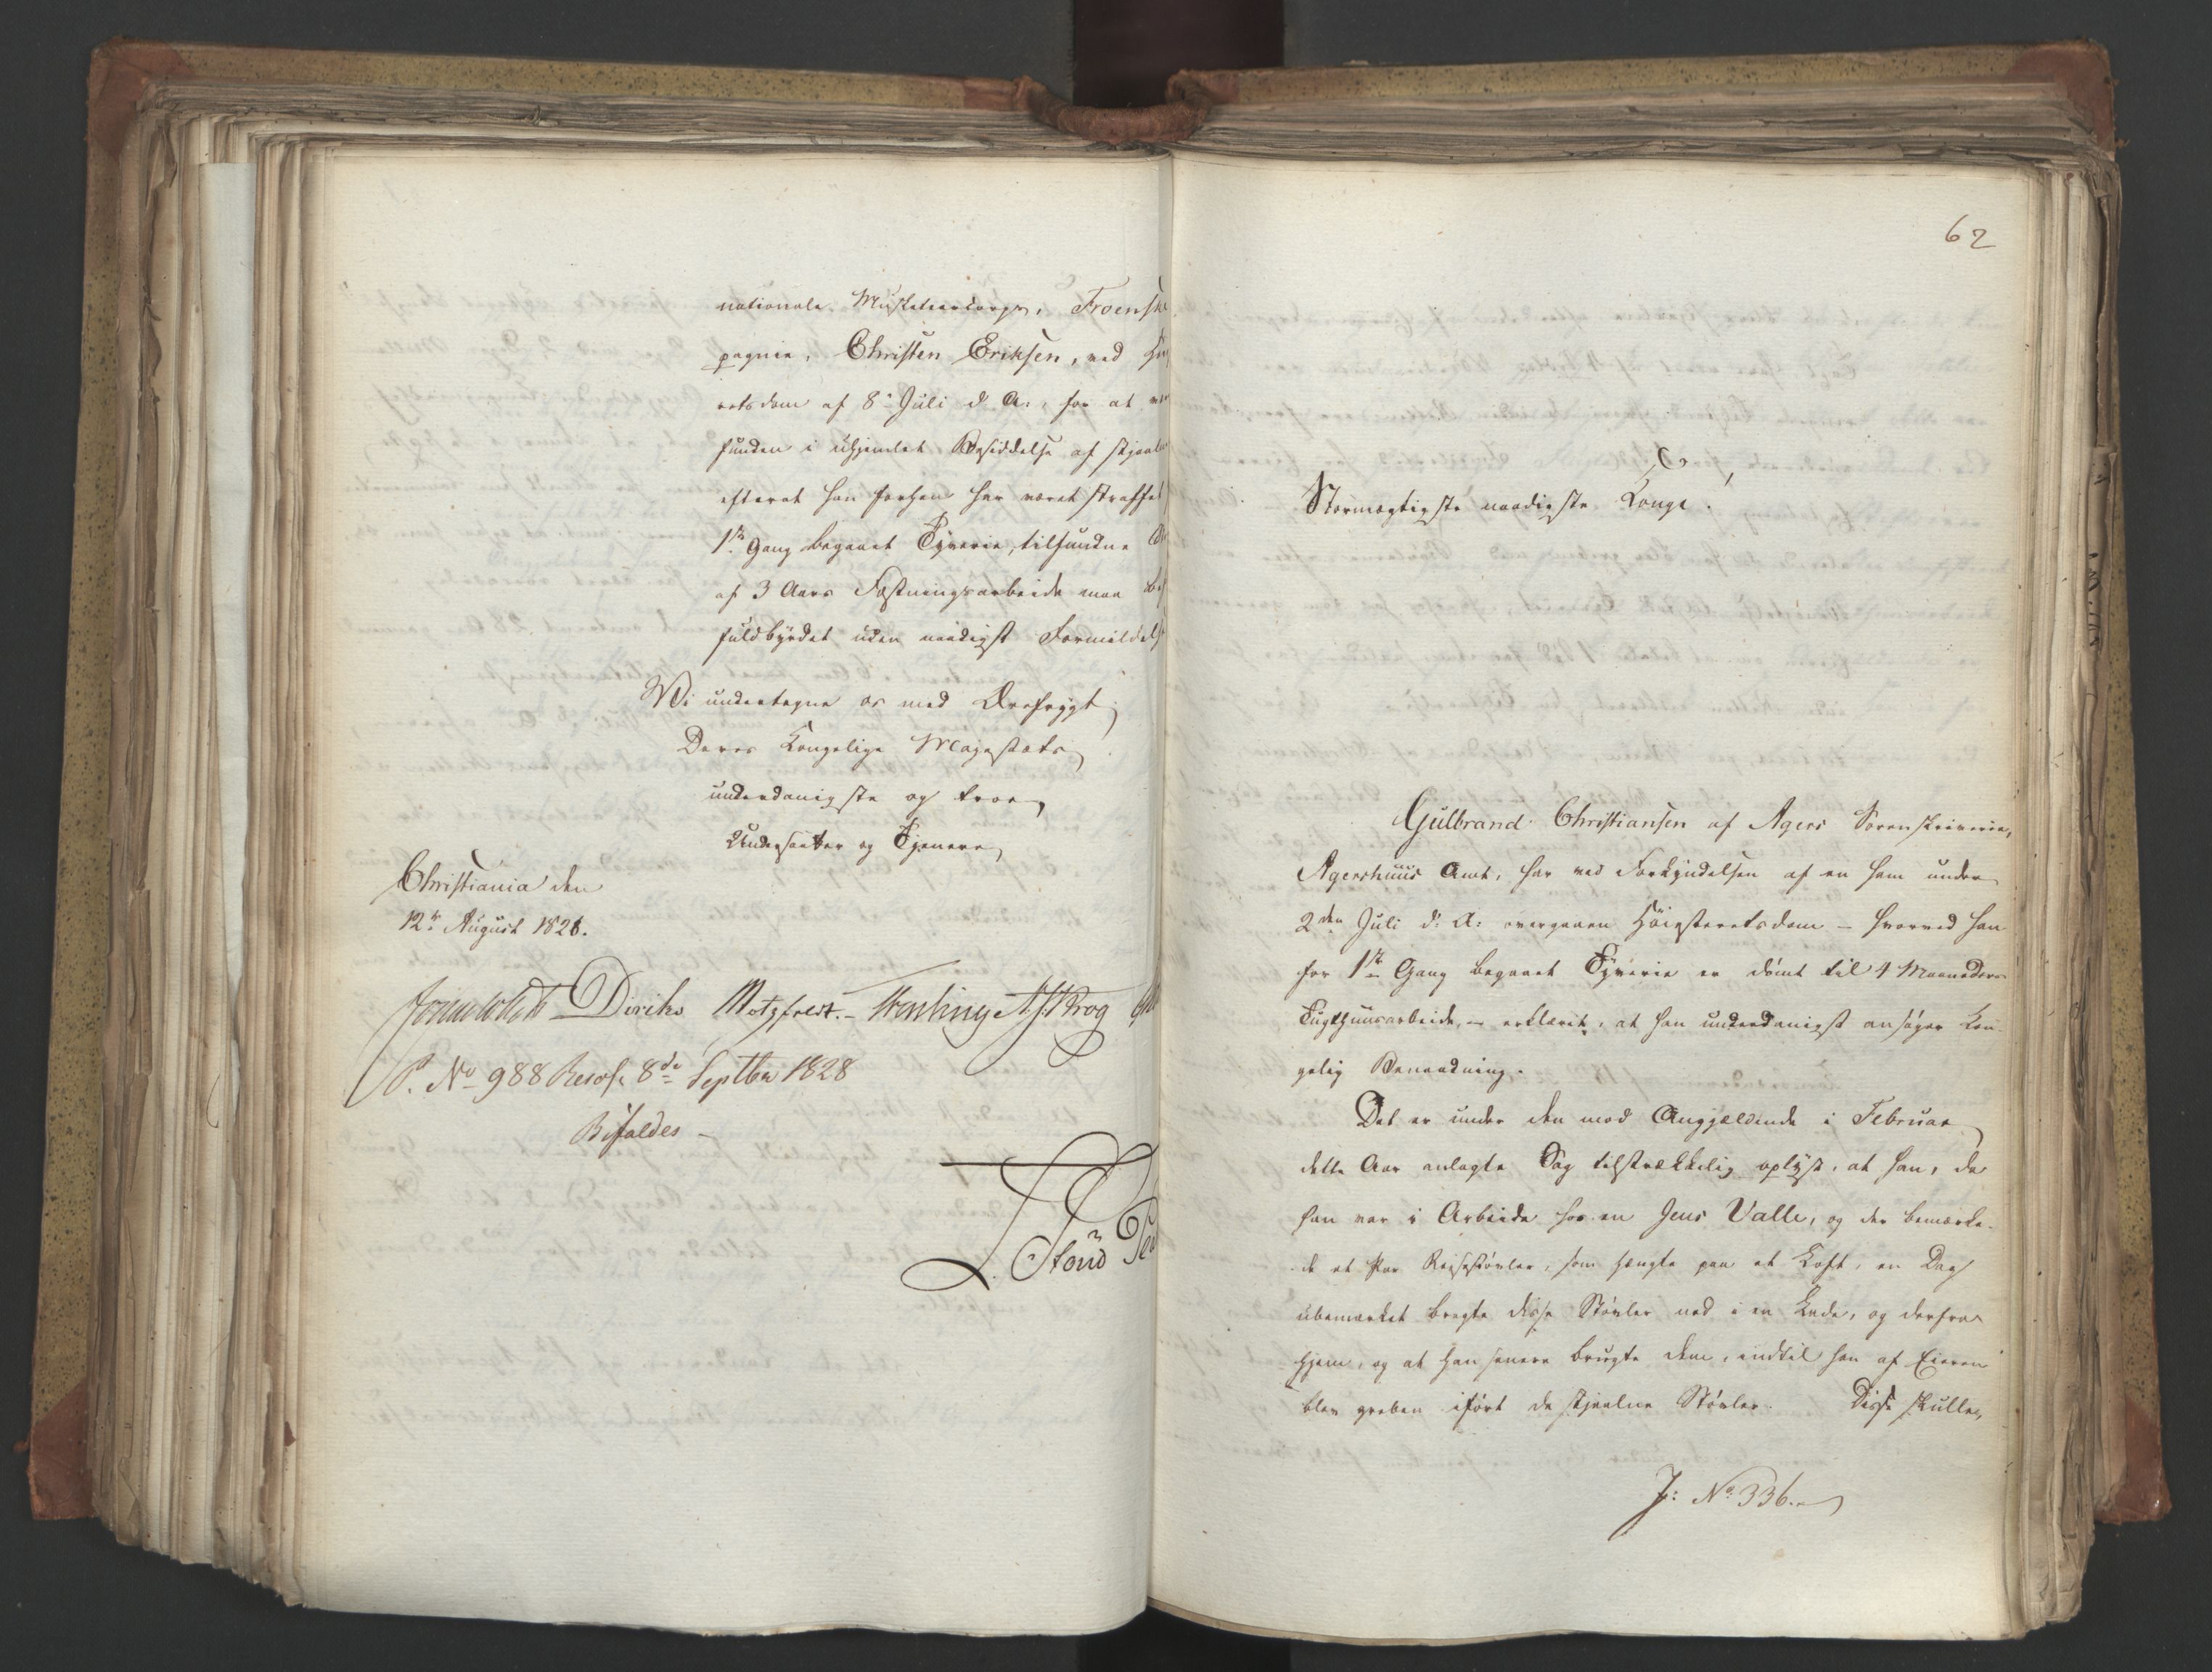 nationale Musketeercorps, Froenske
pagnie, Christen Eriksen, ved
retsdom af 8de Juli d: A:, for at
funden i uhjemlet Besiddelse af stjaalne
efterat han forhen har været straffet
1ste Gang begaaet Tyverie, tilfundne
af 3 Aars Fæstningsarbeide maa
fuldbyrdet uden naadigst Formildelse
Vi undertegne os med Ærefrygt
Deres Kongelige Majestæts
underdanigste og troe
Undersaatter og Tjenere
Christiania den
12te August 1828.
Diriks Motzfeldt. Krog
P. No 988 Resol: 8de Septbr 1828
Bifaldes
62
Stormægtigste naadigste Konge!
Gulbrand Christiansen af Agers Sorenskriverie,
Agershuus Amt, har ved Forkyndelsen af en ham under
2den Juli d: A: overgaaen Höiesteretsdom – hvorved han
for 1ste Gang begaaet Tyverie er dömt til 4 Maaneders
Tugthuusarbeide, – erklæret, at han underdanigst ansöger Kon-
gelig Benaadning.
Det er under den mod Angjældende i Februar
dette Aar anlagte Sag tilstrækkelig oplyst, at han, da
han var i Arbeide hos en Jens Valle, og der bemærke-
de et Par Reisestövler, som hængte paa et Loft, en Dag
ubemærket bragte disse Stövler ned i en Lade, og derfra
hjem, og at han senere brugte dem, indtil han af Eieren
blev greben ifört de stjaalne Stövler. Disse skulle,
J: No 336.